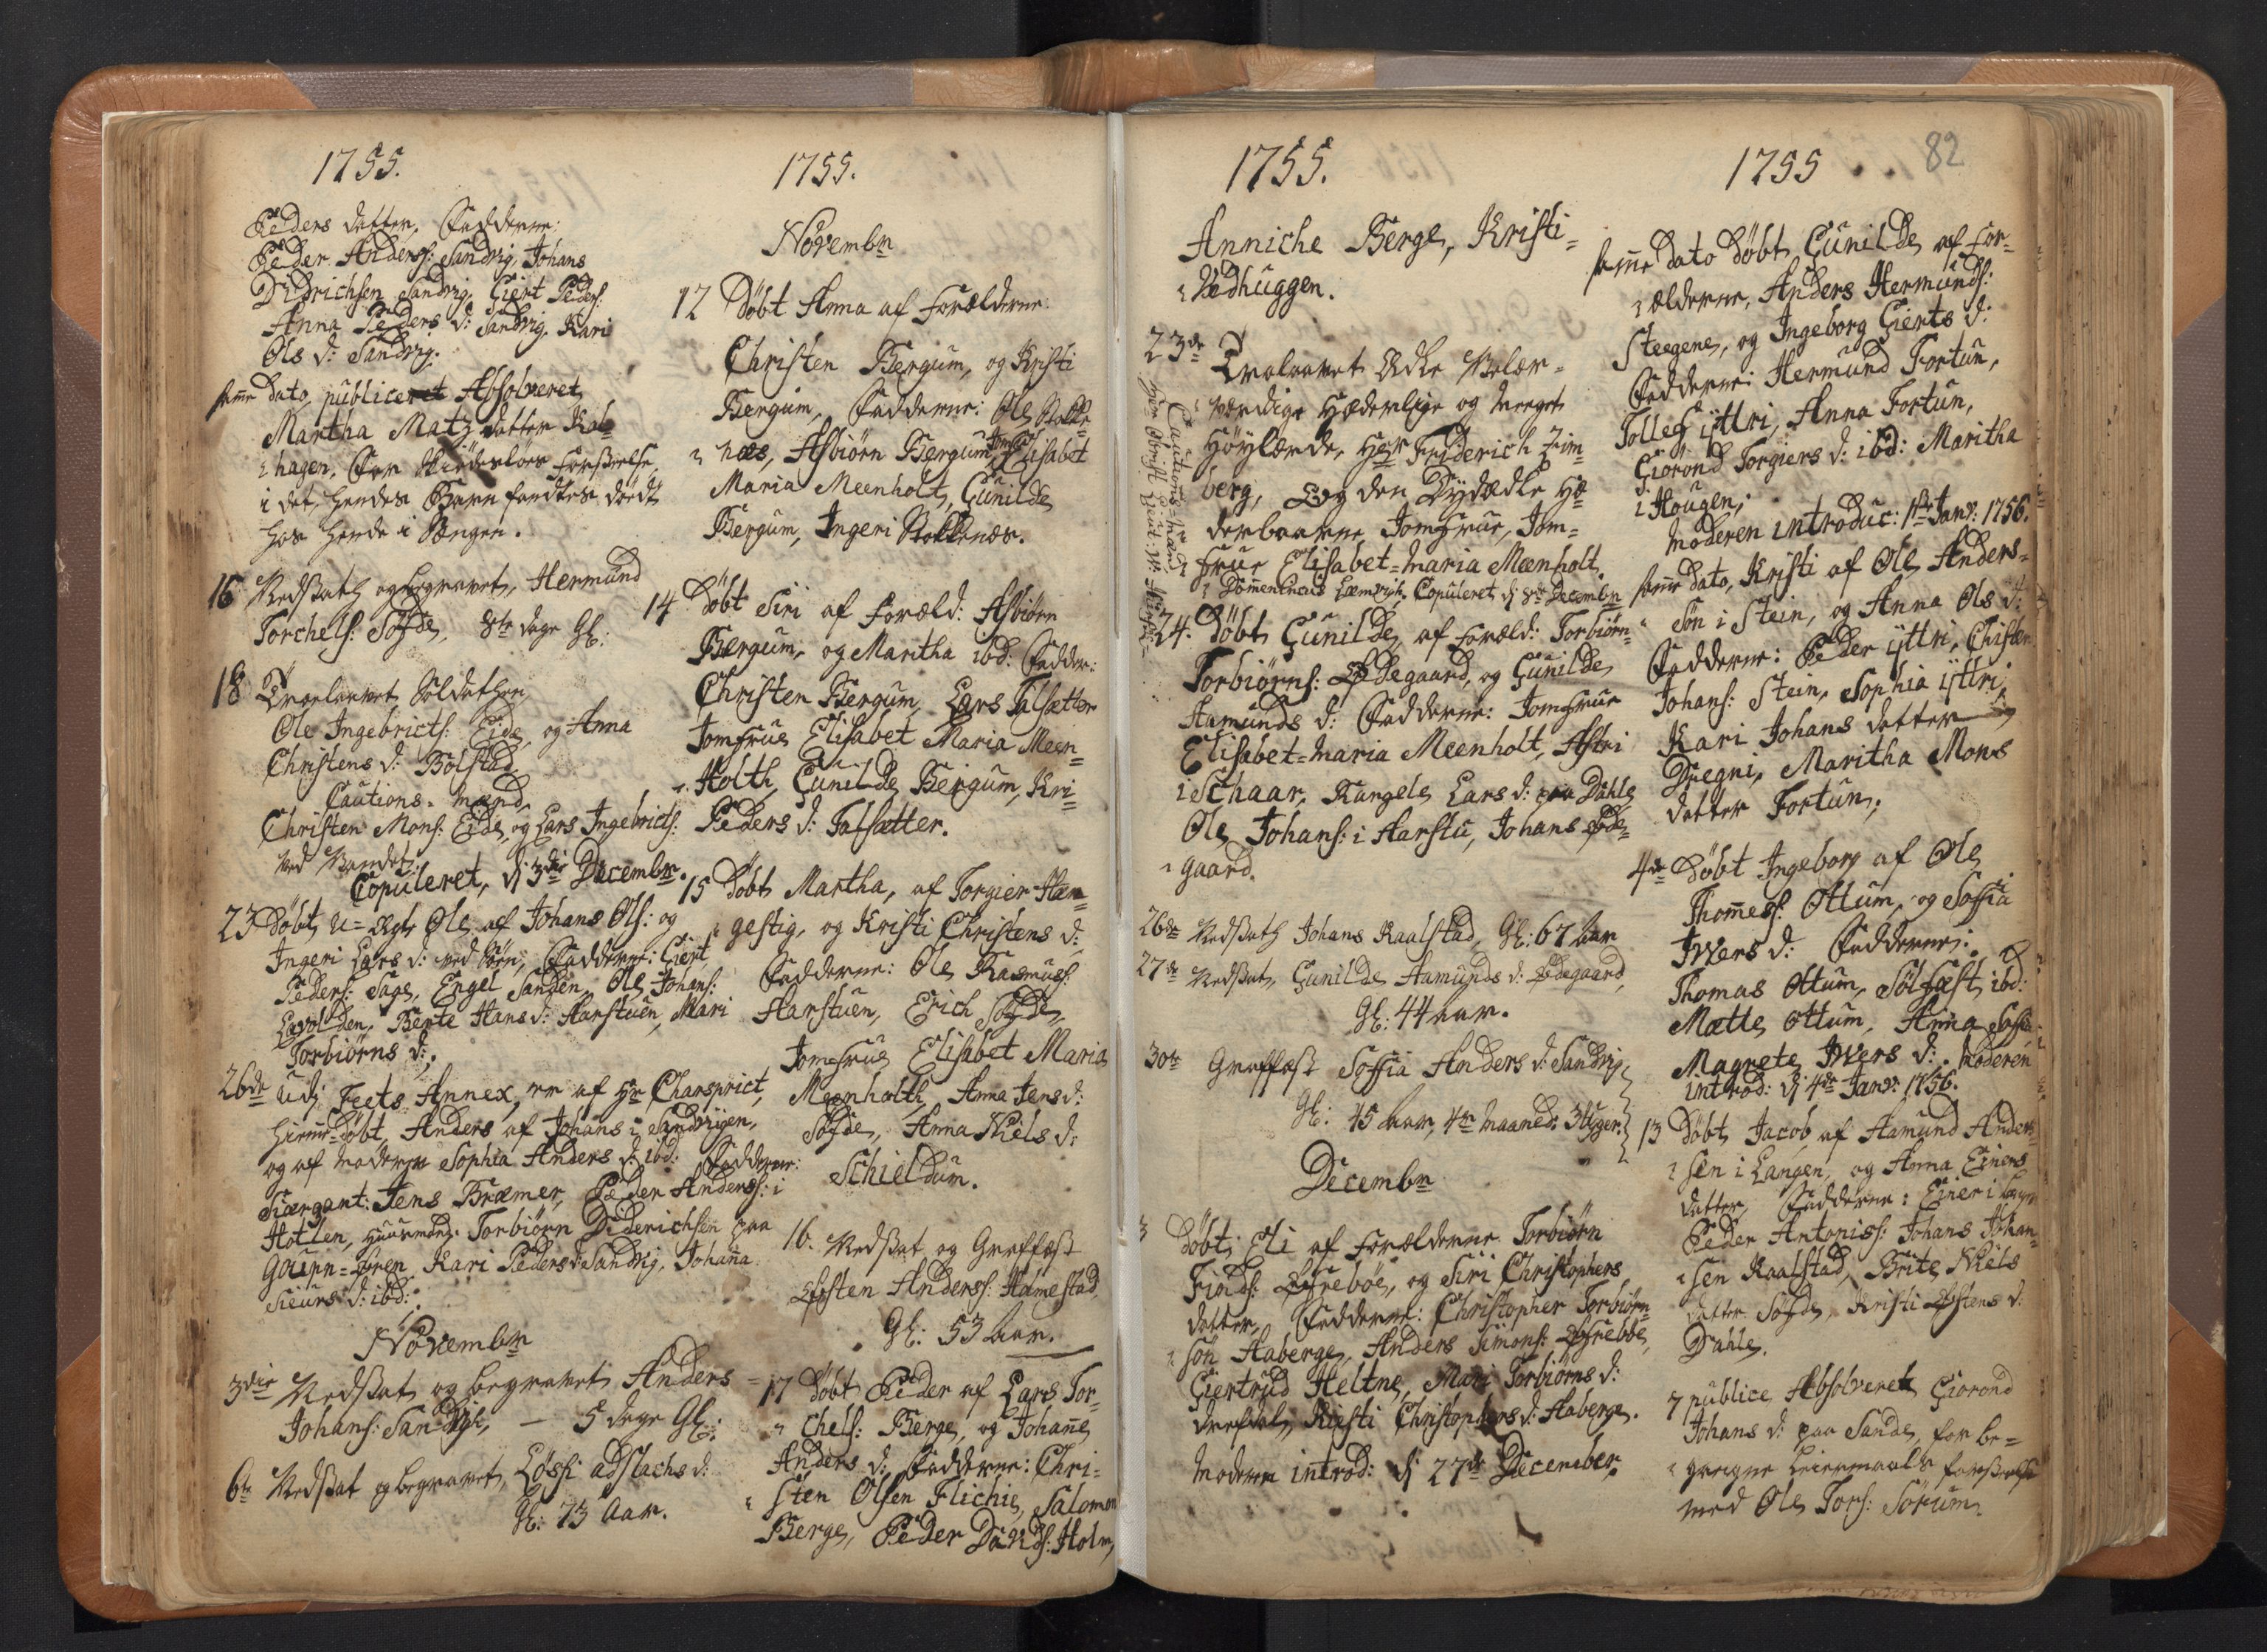 1755.
Peders datter, Fadderne:
Peder Anderss: Sandvig, Johans
Didrichsen Sandvig, Giert Peders:
Anna Peders d: Sandvig, Kari
Ols d: Sandvig.
samme dato, publiceret Absolveret
Martha Matz datter Kal=
hagen, for forseelse,
i det hendes Barn fandtes dødt
hos hende i Sængen.
16 Nedsatt og begravet, Hermund
Torchels: Sogde, 8te dage Gl:
18 Trolovet Soldathen
Ole Ingebricts: Eide, og Anna
Christens d: Bolstad,
Cautions-mænd
Christen Mons: Eide, og Lars Ingebricts:
ved Vandet:
Copuleret, d: 3die Decembr.
23 Døbt u=ægte Ole af Johans Ols: og
Ingeri Lars d: ved Søen, Fadderne: Giert
Peders: Sage, Engel Sanden, Ole Johans:
Berte Hans d: Harstuen, Mari
Torbiørns d:,
26de udj Feets Annex, er af Hr Chamsprict,
hiemme-døbt, Anders af Johans i Sandvigen,
og af moderen Sophia Anders d: ibd: Fadderne:
Siærgant: Jens Bræmer, Peder Anderss: i
Hollen, Huusmand: Torbiørn Diderichsen paa
Kari Peders d: Sandvig, Johanna
Sieurs d: ibd:
Novembr
3die Nedsat og begravet, Anders
Johans: Sandvigh, — 5 dage Gl:
6te Nedsat og begravet, d:
Gl: 73 Aar.
1755.
Novembr
12 Døbt Anna af Forælderne
Christen Bergum, og Kristi
Bergum, Fadderne: Ole Stokke=
næs, Asbiørn Bergum, Jomfr: Elisabet
Maria Meenholt, Gunilde
Bergum, Ingeri Stokkenæs.
14 Døbt Siri af Foræld: Asbiørn
Bergum, og Maritha ibd: Fadder:
Christen Bergum, Lars Talsætter
Jomfrue Elisabet Maria Meen=
Holth, Gunilde Bergum, Kri=
Peders d: Talsætter.
15 Døbt Martha, af Torgier Hæn=
gestig, og Kristi Christens d:,
Fadderne: Ole Rasmuss:
Harstuen, Erich Sogde,
Jomfrue Elisabet Maria
Meenholth, Anna Jens d:
Sogde, Anna Niels d:
Schieldum.
16. Nedsat og Græffæst
Østen Anderss: Hamestad,
Gl: 53 Aar.
17 Døbt Peder af Lars Tor=
chels: Berge, og Johanne
Anders d: Fadderne: Chri=
sten Olsen Flichie, Salomon
Berge, Peder Davids: Holm,
1755.
Anniche Berge, Kristi=
Vedhuggen.
23de Trolovet Ædle Velær=
værdige Hæderlige og meeget
Høylærde, Herr Friderich Zim=
berg, og den Dydædle Hæ=
derbaarne Jomfrue, Jom=
frue Elisabet=Maria Meenholt,
Cautions-mænd
Domenencus Læmvigh, Copuleret d: 8de Decembr
24. Døbt Gunilde af Foræld: Torbiørn
Torbiørns: Ødegaard, og Gunilde
Aamunds d: Fadderne: Jomfrue
Elisabet=Maria Meenholt, Astri
i Schaar, Rangele Lars d: paa Dahle
Ole Johans: i Harstu, Johans Øde=
gaard.
26de Nedsatt Johans Kaalstad, Gl: 67 Aar
27de Nedsat, Gunilde Aamunds d: Ødegaard,
Gl: 44 aar.
30te Græffæst Soffia Anders d: Sandvig,
Gl: 45 aar, 4re Maaned: 3 Uger.
Decembr
3 Døbt Eli af Forælderne Torbiørn
Finds: Øfrebøe, og Siri Christophers
datter, Fadderne: Christopher Torbiørn=
søn Haberge, Anders Simons: Øfrebøe,
Giertrud Heltne, Mari Torbiørns d:
Kristi Christophers d: Haberge.
Moderen introd: d: 27de December,
1755
82
samme dato døbt Gunilde af For=
ælderne, Anders Hermunds:
Steegene, og Ingeborg Gierts d:
Fadderne: Hermund Fortun,
Tollef ÿttri, Anna Fortun,
Giørond Torgiers d: ibd: Maritha
i Hougen,
Moderen introduc: 1ste Janv: 1756.
samme dato, Kristi af Ole Anders=
søn i Stein, og Anna Ols d:
Fadderne: Peder ÿttri, Christen
Johans: Stein, Sophia ÿttri,
Kari Johans datter
Dregni, Maritha Mons
datter Fortun,
4de Døbt Ingeborg af Ole
Thomess: Ottum, og Soffia
Iwers d: Fadderne:
Thomas Ottum, Sølfæst ibd:
Mætte Ottum, Anna
Magrete Iwers d:. Moderen
introd: d: 4de Janv: 1756.
13 Døbt Jacob af Aamund Anders=
sen i Langen, og Anna Einers
datter, Fadderne: Einer i
Peder Antoniss: Johans Johan=
sen Kaalstad, Brite Niels
datter Sogde, Kristi Østens d:
Dahle.
7 publice Absolveret Giorond
Johans d: paa Sande, for be=
gangne Leiermaals forseelse
med Ole Tors: Sørum.